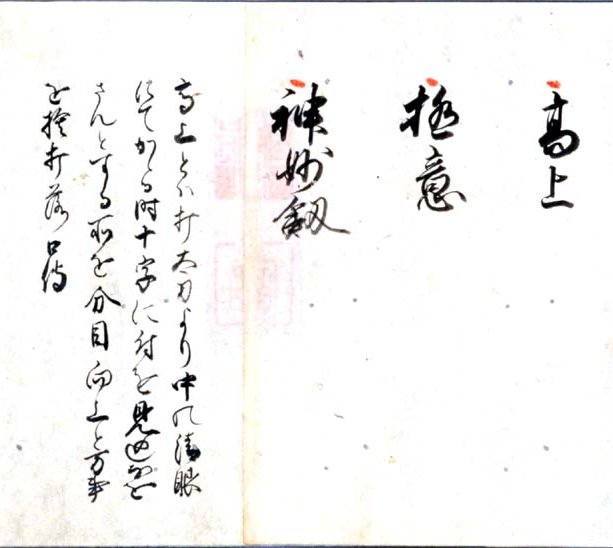 高上
極意
神妙剱
高上とハ打太刀より中の清眼
にてかゝる時十字に付を見込を
さんとする所を分目向上と万事
を捨打落口傳